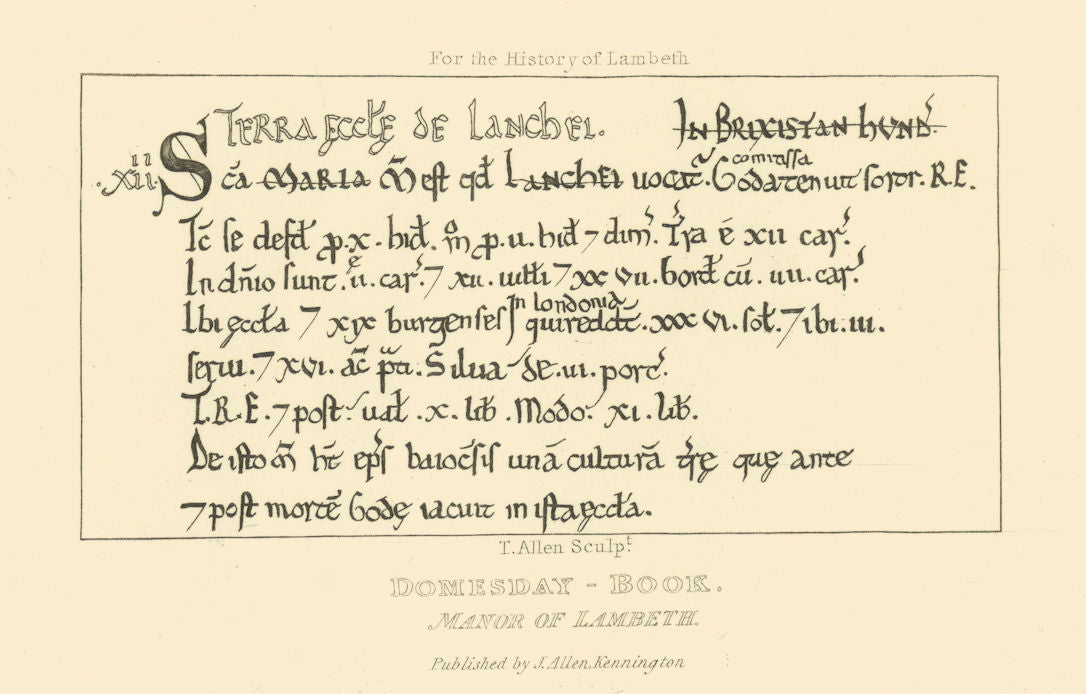 For the History of Lambeth
TERRA ECCLE DE LANCHEI. IN BRIXISTAN HUND'
.XIIII. Sc̄a MARIA M̄ est qd̄ LANCHEI uocat̄. Goda comitissa tenuit soror. R.E.
Tc̄ se defd̄ p.x.hid̄. m̊ p.ii.hid̄ 7 dim̄. Tr̄a ē xii car̄.
In dn̄io sunt.ii.car̄. 7 xii.uitti 7 xxvii.bord̄ cū.iiii.car̄.
Ibi ęccła 7 xix burgenses In Londonia qui redd̄t.xxxvi.soł. 7 ibi.iii.
serui. 7 xvi.ac̄ p̄ti. Silua de.iii.porc̄.
T.R.E. 7 post uał.x.lib̄. Modo. xi.lib̄.
De isto M̄ ht̄ ep̄s baioc̄sis unā culturā t̄rę quę ante
7 post mortē Godę iacuit in ista ęccła.
T. Allen Sculpt.
DOMESDAY - BOOK.
MANOR OF LAMBETH.
Published by J. Allen, Kennington